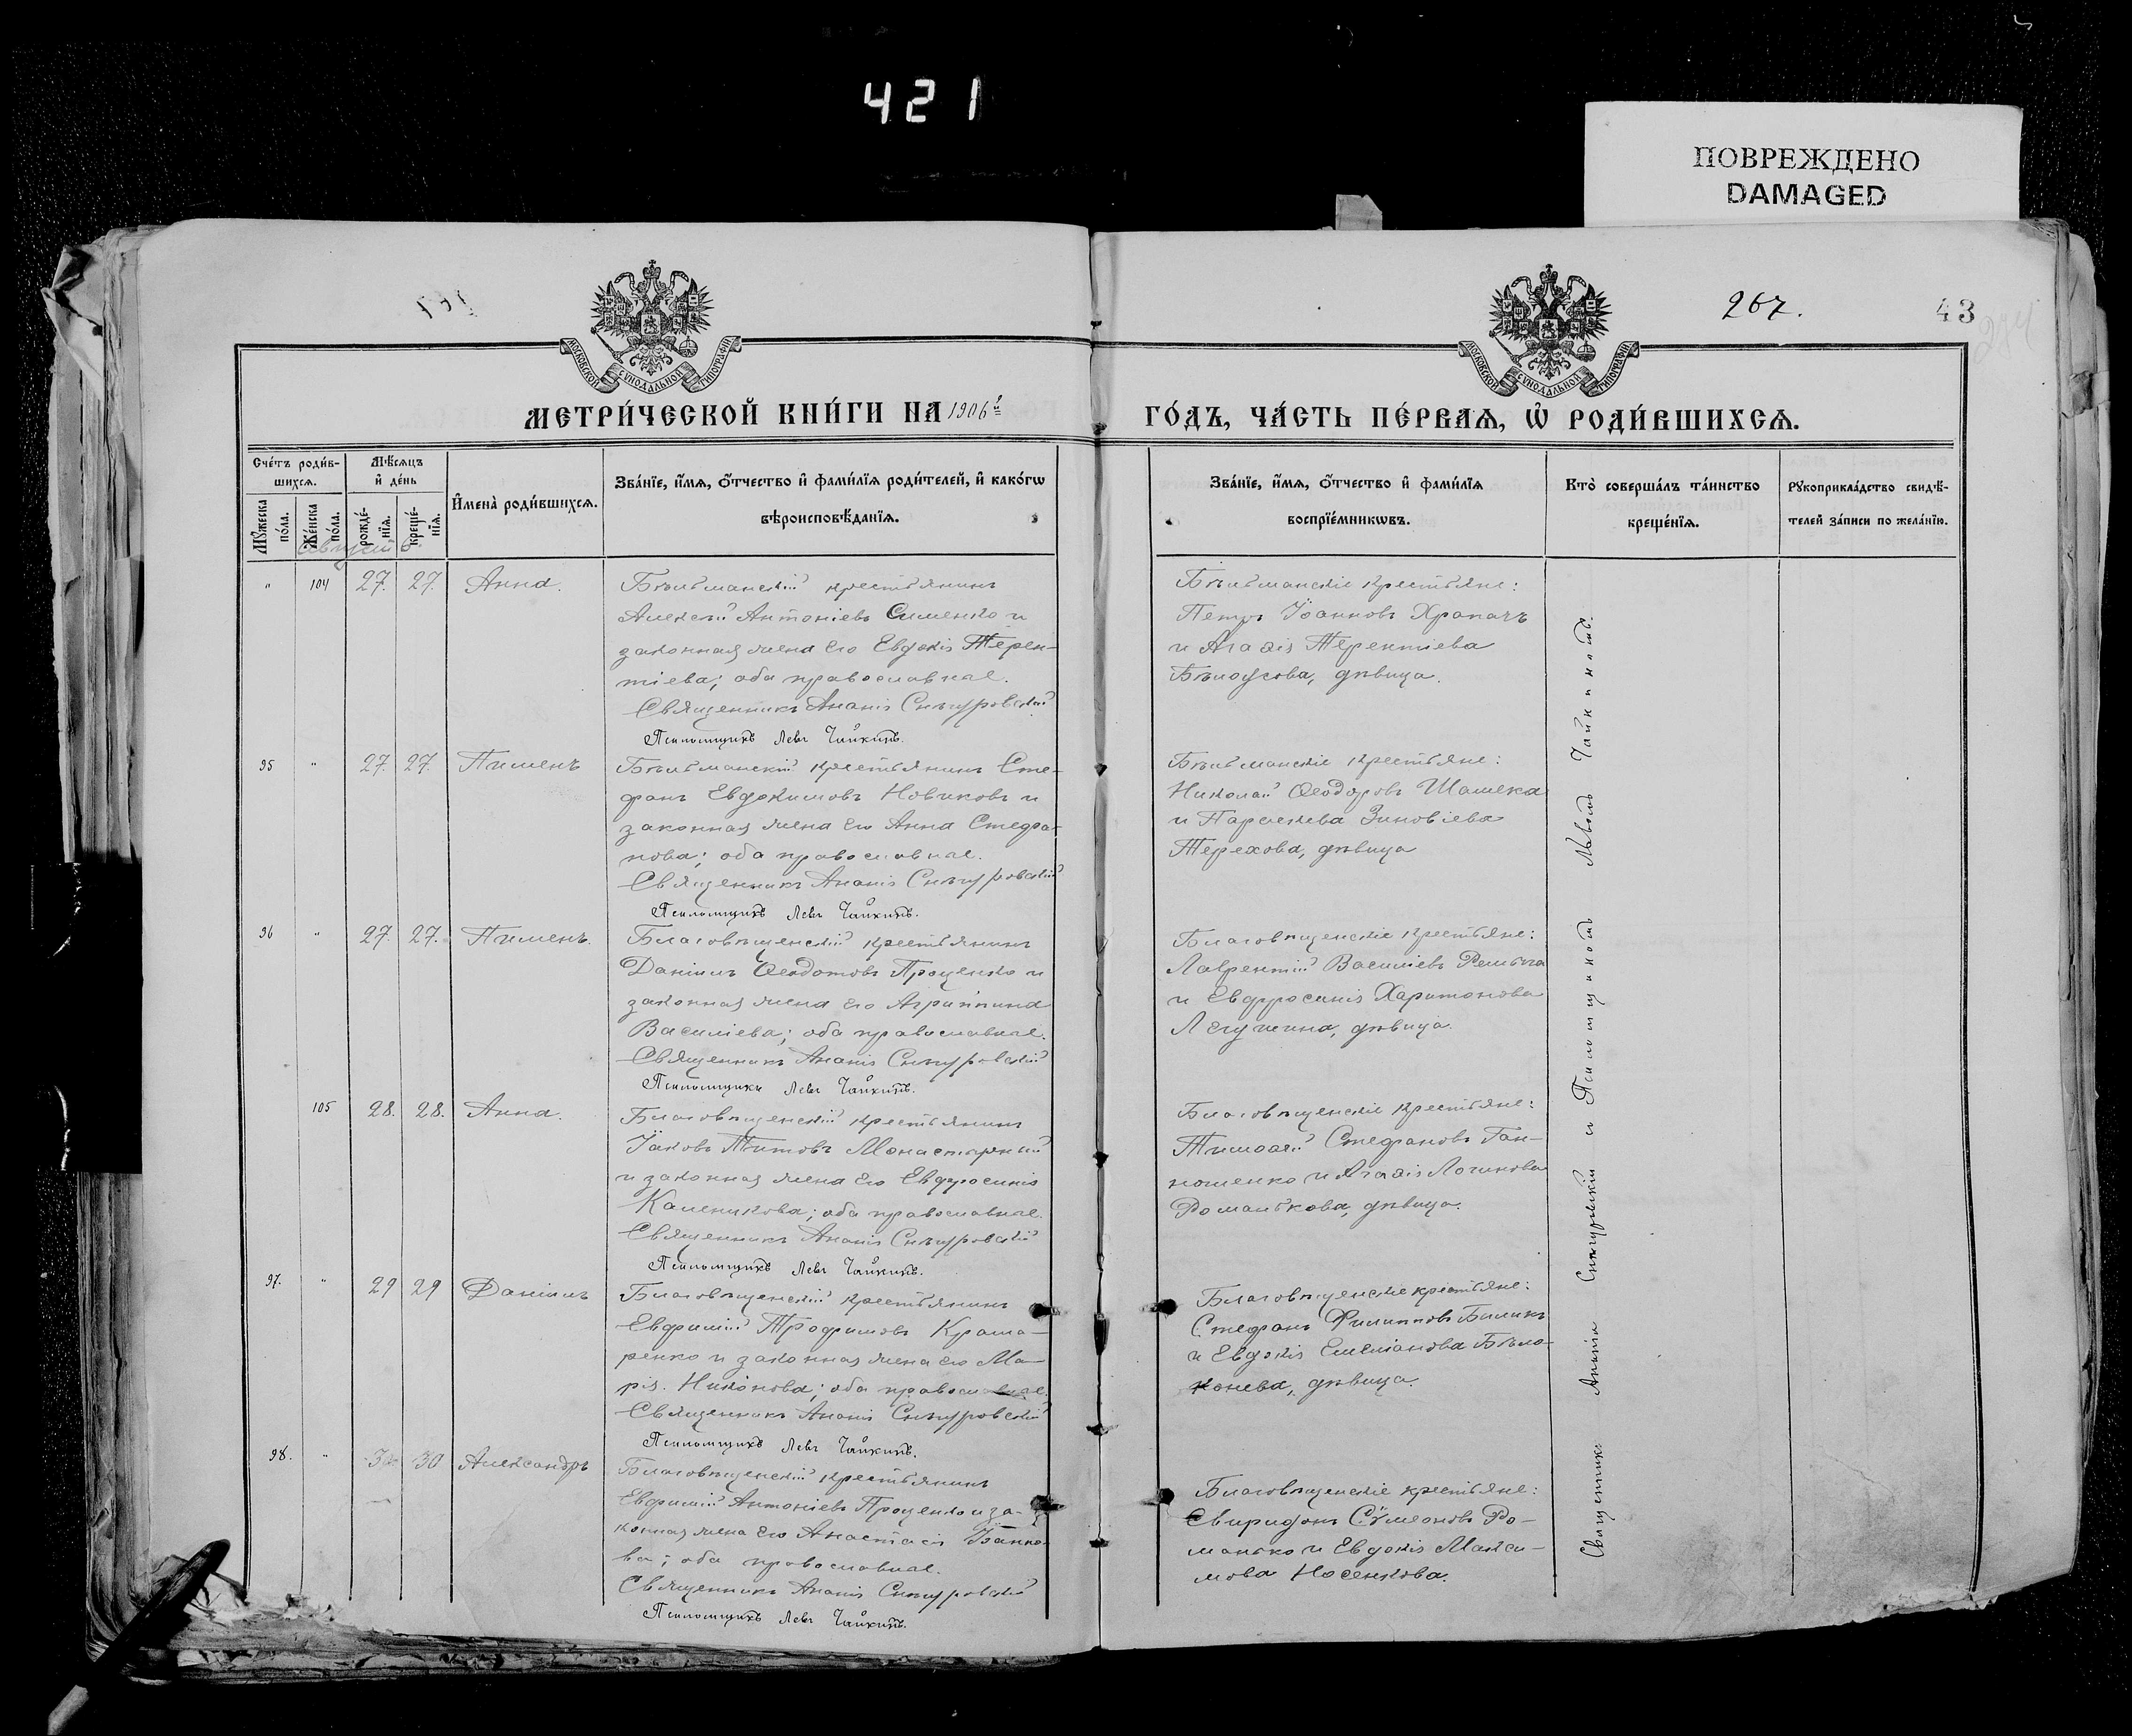 421
ПОВРЕЖДЕНО
DAMAGED
МОСКОВСКОЙ СУНОДАЛЬНОЙ ТИПОГРАФІИ
МОСКОВСКОЙ СУНОДАЛЬНОЙ ТИПОГРАФІИ
267.
43
МЕТРИ́ЧЕСКОЙ КНИ́ГИ НА 1906й
ГО́ДЪ, ЧА́СТЬ ПЕ́РВАѦ, Ѡ҆ РОДИ́ВШИХСѦ.
Сче́тъ роди́в-
шихсѧ.
Мѣ́сѧцъ
и҆ де́нь
Мꙋ́жеска по́ла.
Же́нска по́ла.
рожде́-нїѧ.
креще́-нїѧ.
И҆мена̀ роди́вшихсѧ.
Зва́нїе, и҆́мѧ, ѻ҆́тчество и҆ фами́лїѧ роди́телей, и҆ како́гѡ
вѣроисповѣ́данїѧ.
Зва́нїе, и҆́мѧ, ѻ҆́тчество и҆ фами́лїѧ
воспрїе́мникѡвъ.
Кто̀ соверша́лъ та́инство
креще́нїѧ.
Рꙋкоприкла́дство свидѣ́-
телей за́писи по жела́нїю.
Августъ
" 104 27. 27. Анна.
Бѣльманскій крестьянинъ
Алексѣй Антоніевъ Сименко и
законная жена его Евдокія Терен-
тіева; оба православные.
Священникъ Ананія Снѣгуровскій
Псаломщикъ Левъ Чайкинъ.
Бѣльманскіе крестьяне:
Петръ Іоанновъ Храпачъ
и Агаѳія Терентіева
Бѣлоусова, дѣвица.
95 " 27. 27. Пименъ
Бѣльманскій крестьянинъ Сте-
фанъ Евдокимовъ Новиковъ и
законная жена его Анна Стефа-
нова; оба православные.
Священникъ Ананія Снѣгуровскій
Псаломщикъ Левъ Чайкинъ.
Бѣльманскіе крестьяне:
Николай Ѳеодоровъ Шамека
и Параскева Зиновіева
Терехова, дѣвица
96 " 27. 27. Пименъ.
Благовѣщенскій крестьянинъ
Даніилъ Ѳеодотовъ Проценко и
законная жена его Агриппина
Василіева; оба православные.
Священникъ Ананія Снѣгуровскій
Псаломщикъ Левъ Чайкинъ.
Благовѣщенскіе крестьяне:
Лаврентій Василіевъ
и Евфросинія Харитонова
дѣвица.
105 28. 28. Анна.
Благовѣщенскій крестьянинъ
Іаковъ Титовъ Монастырный
и законная жена его Евфросинія
Каленикова; оба православные.
Священникъ Ананія Снѣгуровскій
Псаломщикъ Левъ Чайкинъ.
Благовѣщенскіе крестьяне:
Тимоѳей Стефановъ Гап-
ношенко и Агаѳія Логинова
Романькова, дѣвица.
97. " 29 29 Даніилъ
Благовѣщенскій крестьянинъ
Евфимій Трофимовъ Крама-
ренко и законная жена его Ма-
рія Никонова; оба православные.
Священникъ Ананія Снѣгуровскій
Псаломщикъ Левъ Чайкинъ.
Благовѣщенскіе крестьяне:
Стефанъ Филипповъ Биликъ
и Евдокія Емеліанова Бѣло-
конева, дѣвица.
98. " 30 30 Александръ
Благовѣщенскій крестьянинъ
Евфимій Антоніевъ Проценко и за-
конная жена его Анастасія Іоанно-
ва; оба православные.
Священникъ Ананія Снѣгуровскій
Псаломщикъ Левъ Чайкинъ.
Благовѣщенскіе крестьяне:
Свиридонъ Сѵмеоновъ Ро-
манько и Евдокія Макси-
мова Носенкова.
Священникъ Ананія Снѣгуровскій и Псаломщикомъ Львомъ Чайкинымъ.